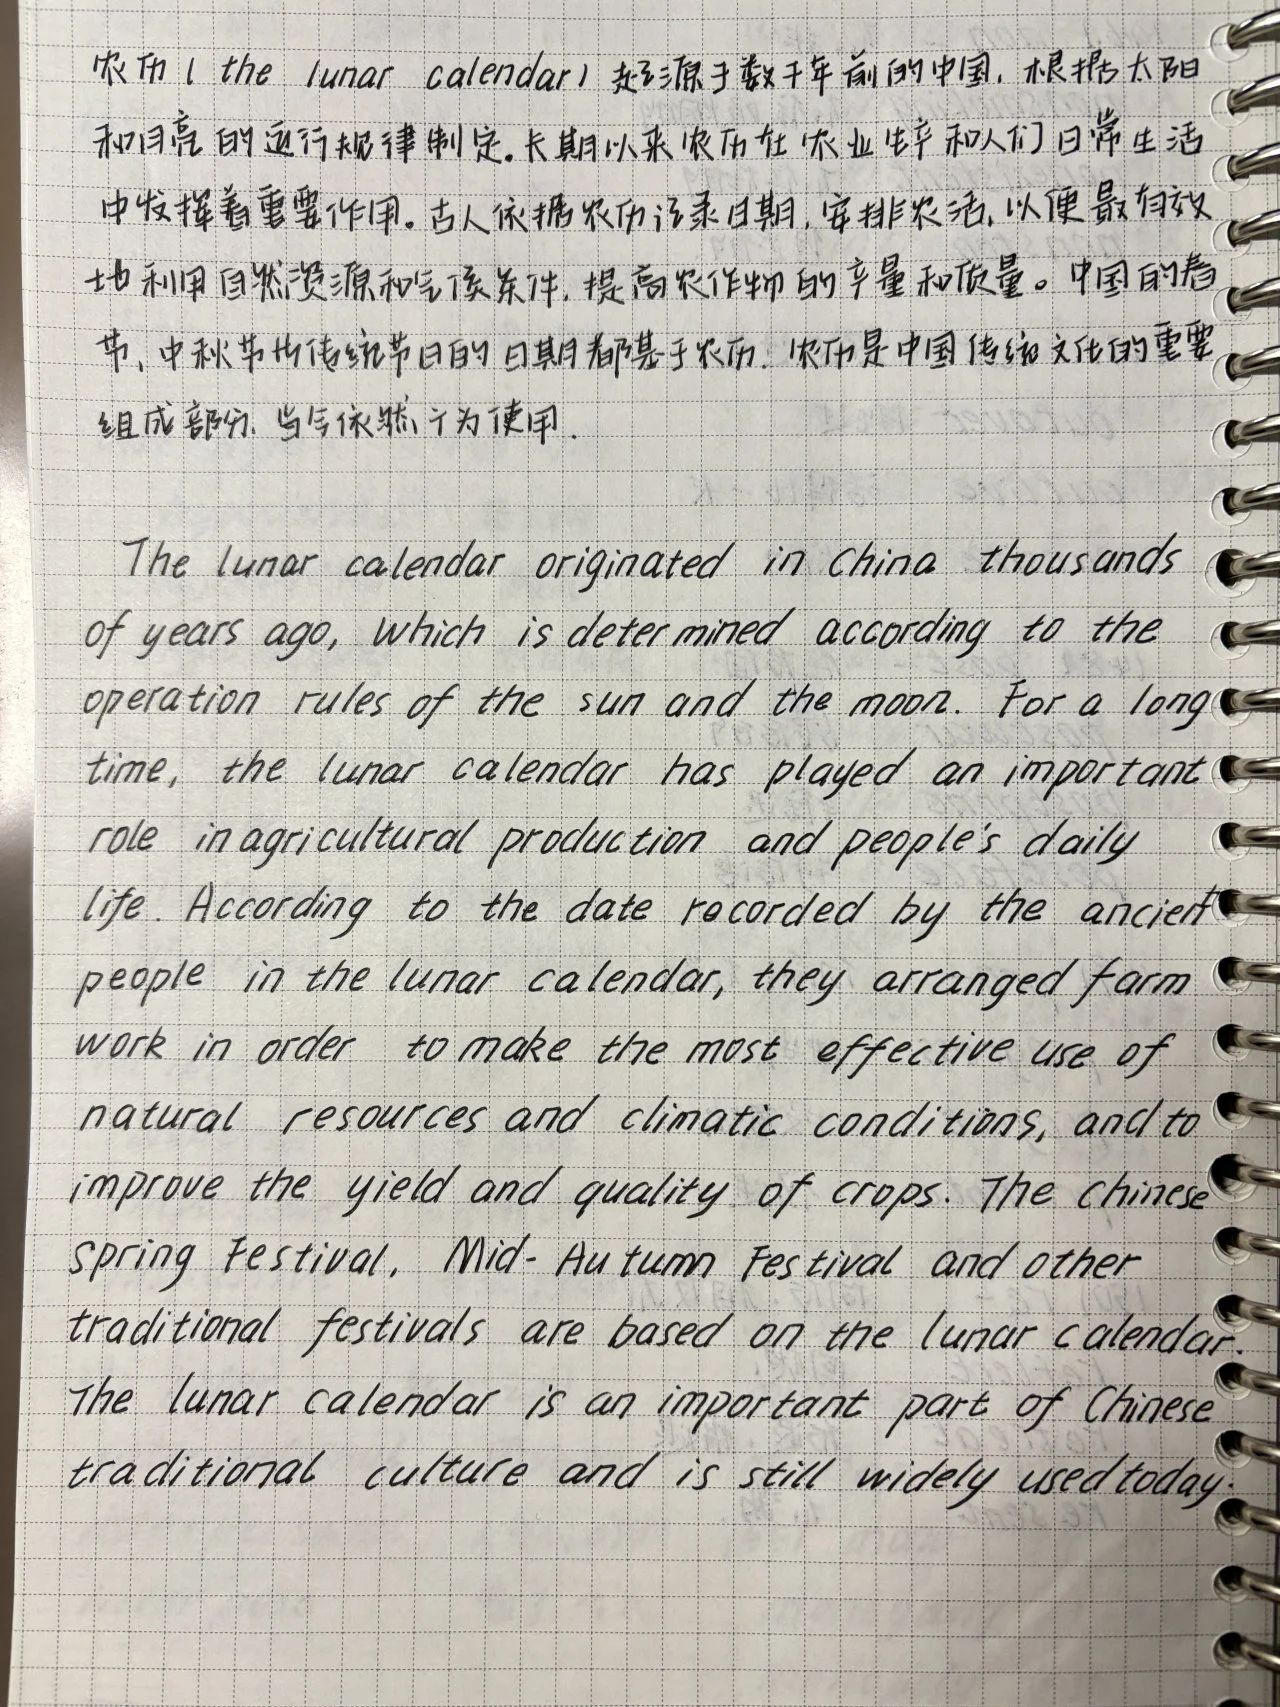 农历(the lunar calendar)起源于数千年前的中国,根据太阳
和月亮的运行规律制定.长期以来农历在农业生产和人们日常生活
中发挥着重要作用。古人依据农历记录日期,安排农活,以便最有效
地利用自然资源和气候条件,提高农作物的产量和质量。中国的春
节、中秋节等传统节日的日期都基于农历.农历是中国传统文化的重要
组成部分,当今依然广为使用.
The lunar calendar originated in China thousands
of years ago, which is determined according to the
operation rules of the sun and the moon. For a long
time, the lunar calendar has played an important
role in agricultural production and people's daily
life. According to the date recorded by the ancient
people in the lunar calendar, they arranged farm
work in order to make the most effective use of
natural resources and climatic conditions, and to
improve the yield and quality of crops. The Chinese
Spring Festival, Mid-Autumn Festival and other
traditional festivals are based on the lunar calendar.
The lunar calendar is an important part of Chinese
traditional culture and is still widely used today.